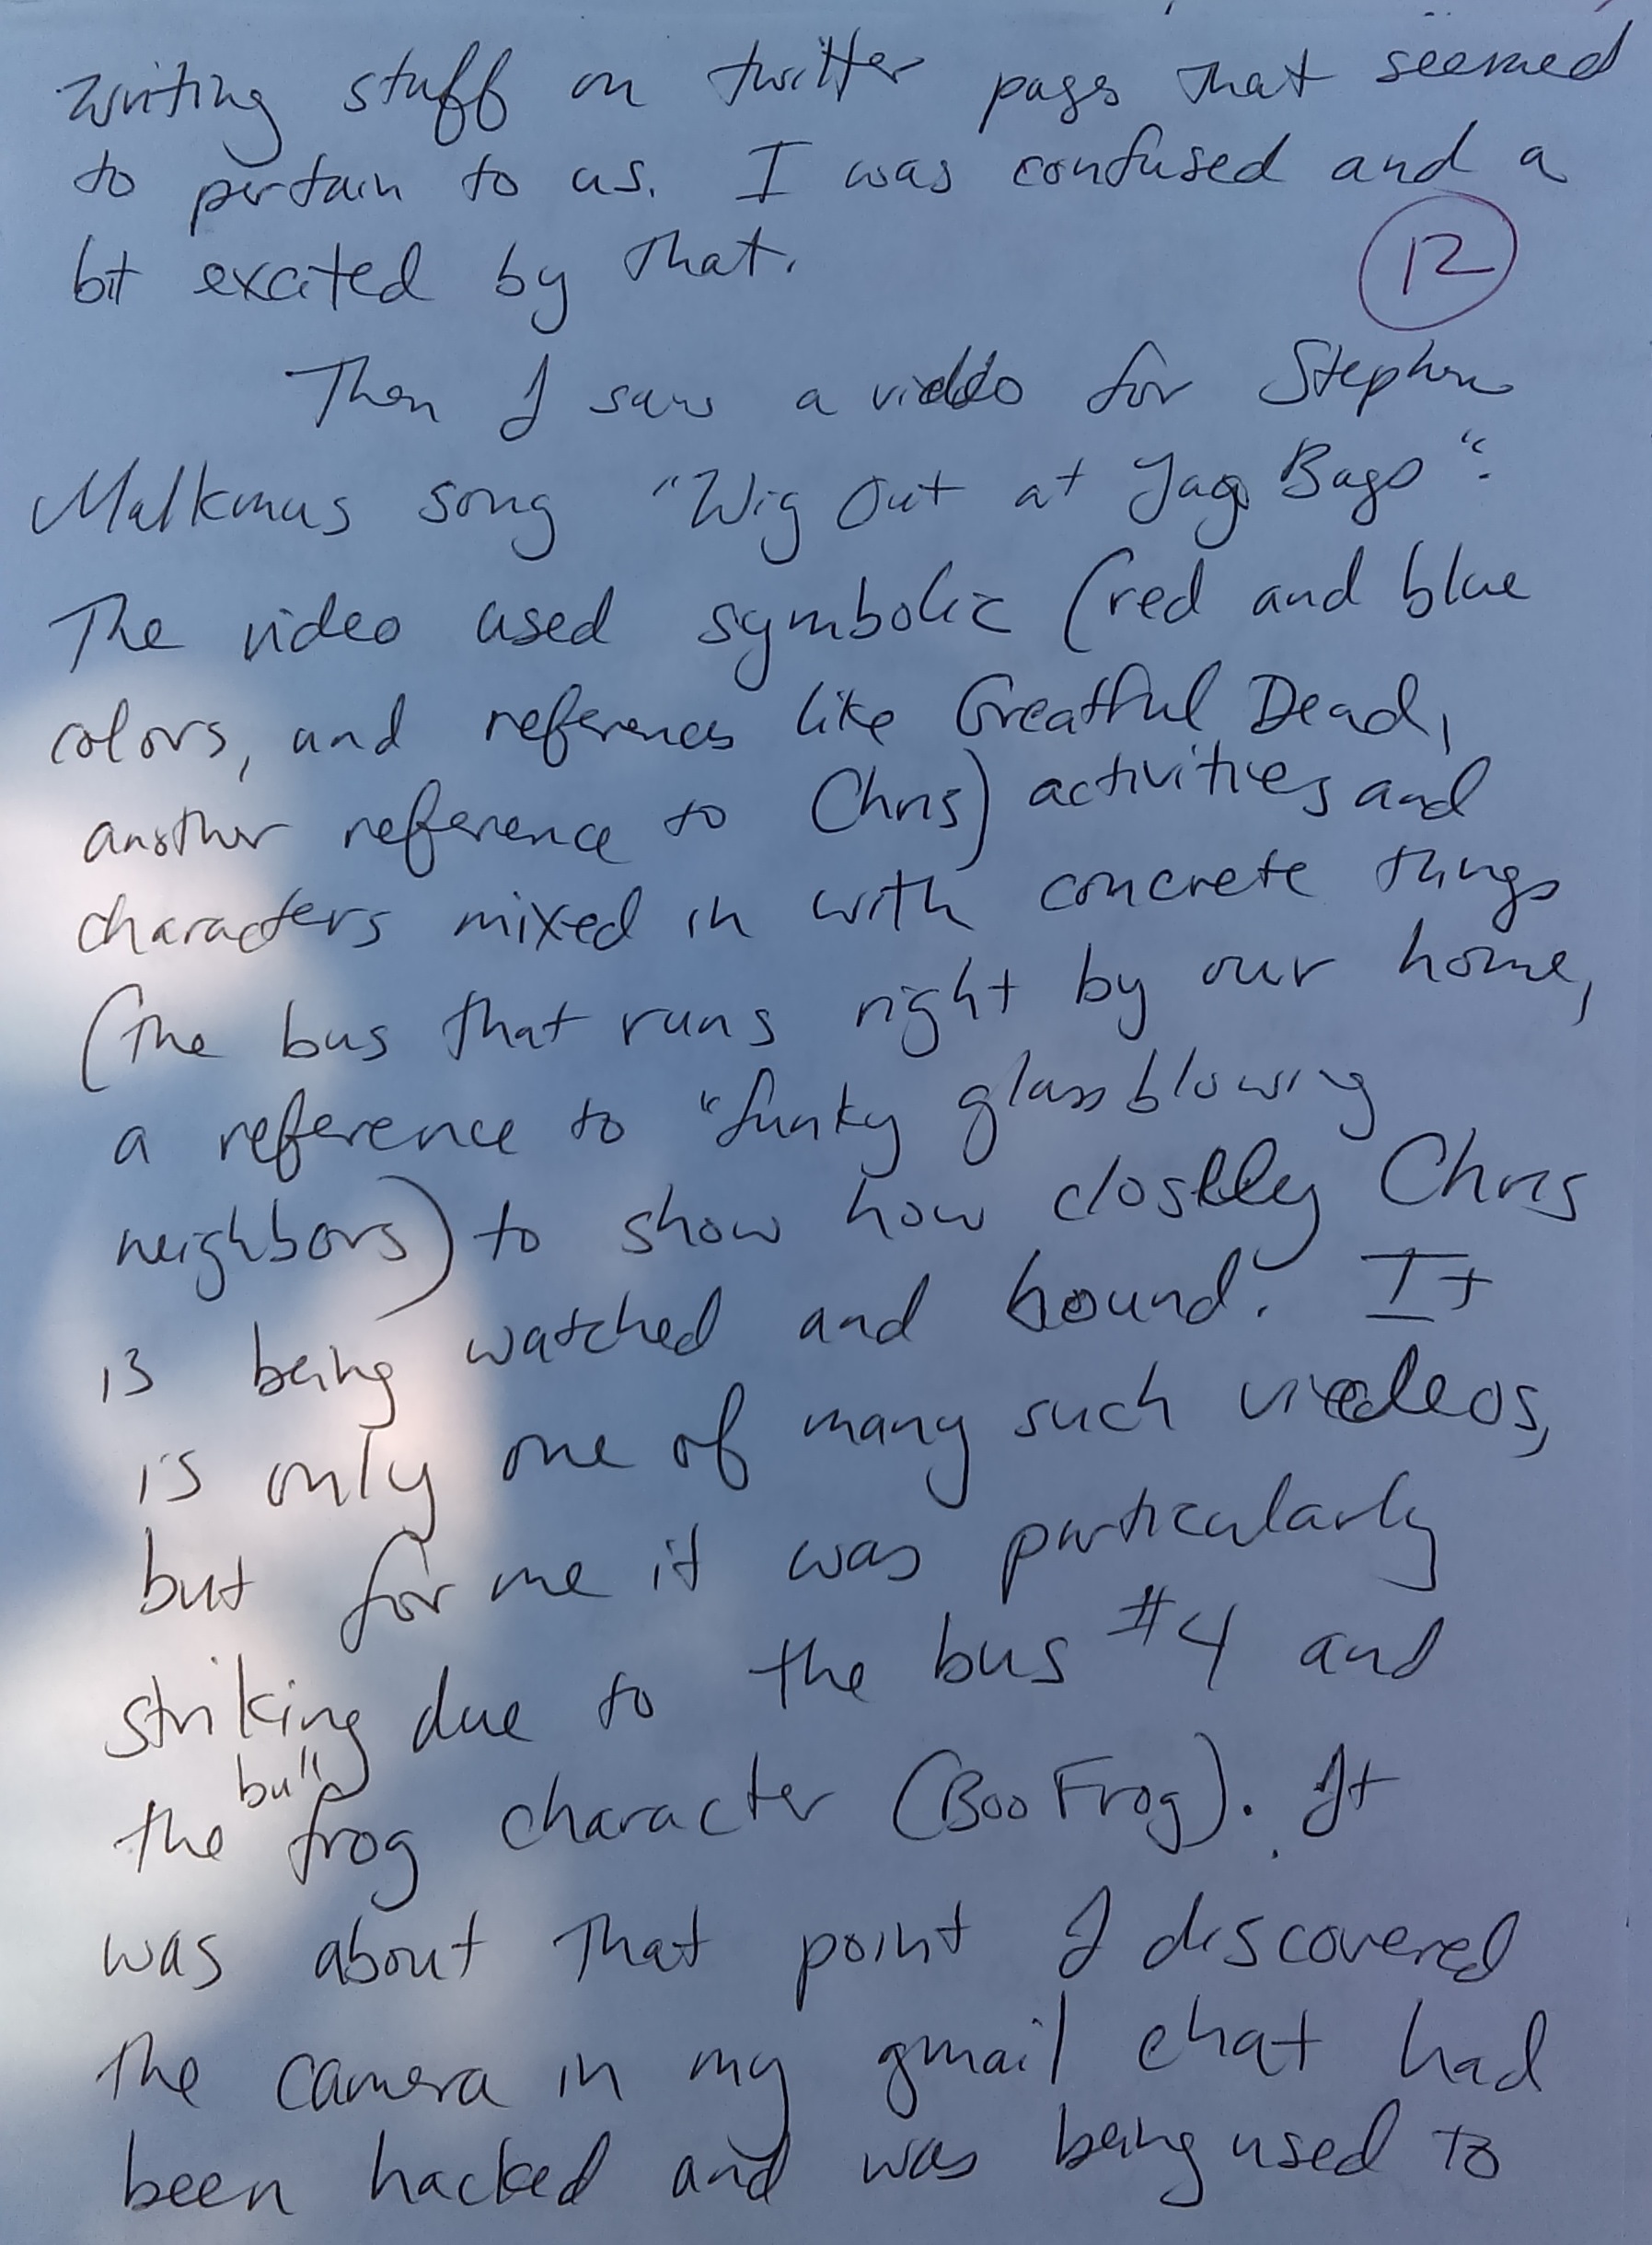 writing stuff on twitter pages that seemed
to pertain to us. I was confused and a
bit excited by that.
12
Then I saw a video for Stephen
Malkmus song "Wig Out at Jag Bags".
The video used symbolic (red and blue
colors, and references like Greatful Dead,
another reference to Chris) activities and
characters mixed in with concrete things
(the bus that runs right by our home,
a reference to "funky glassblowing
neighbors) to show how closely Chris
is being watched and hound. It
is only one of many such videos,
but for me it was particularly
striking due to the bus #4 and
the bull frog character (Boo Frog). It
was about that point I discovered
the camera in my gmail chat had
been hacked and was being used to